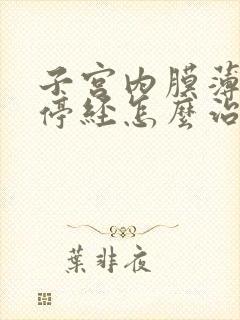 子宫内膜薄
停经怎麼治
葉非夜